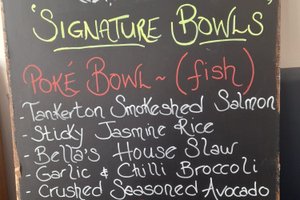 'SIGNATURE BOWLS
POKÉ BOWL ~ (fish)
- Tankerton Smokeshed Salmon
- Sticky Jasmine Rice
- Bella's House Slaw
- Garlic & Chilli Broccoli
- Crushed Seasoned Avocado